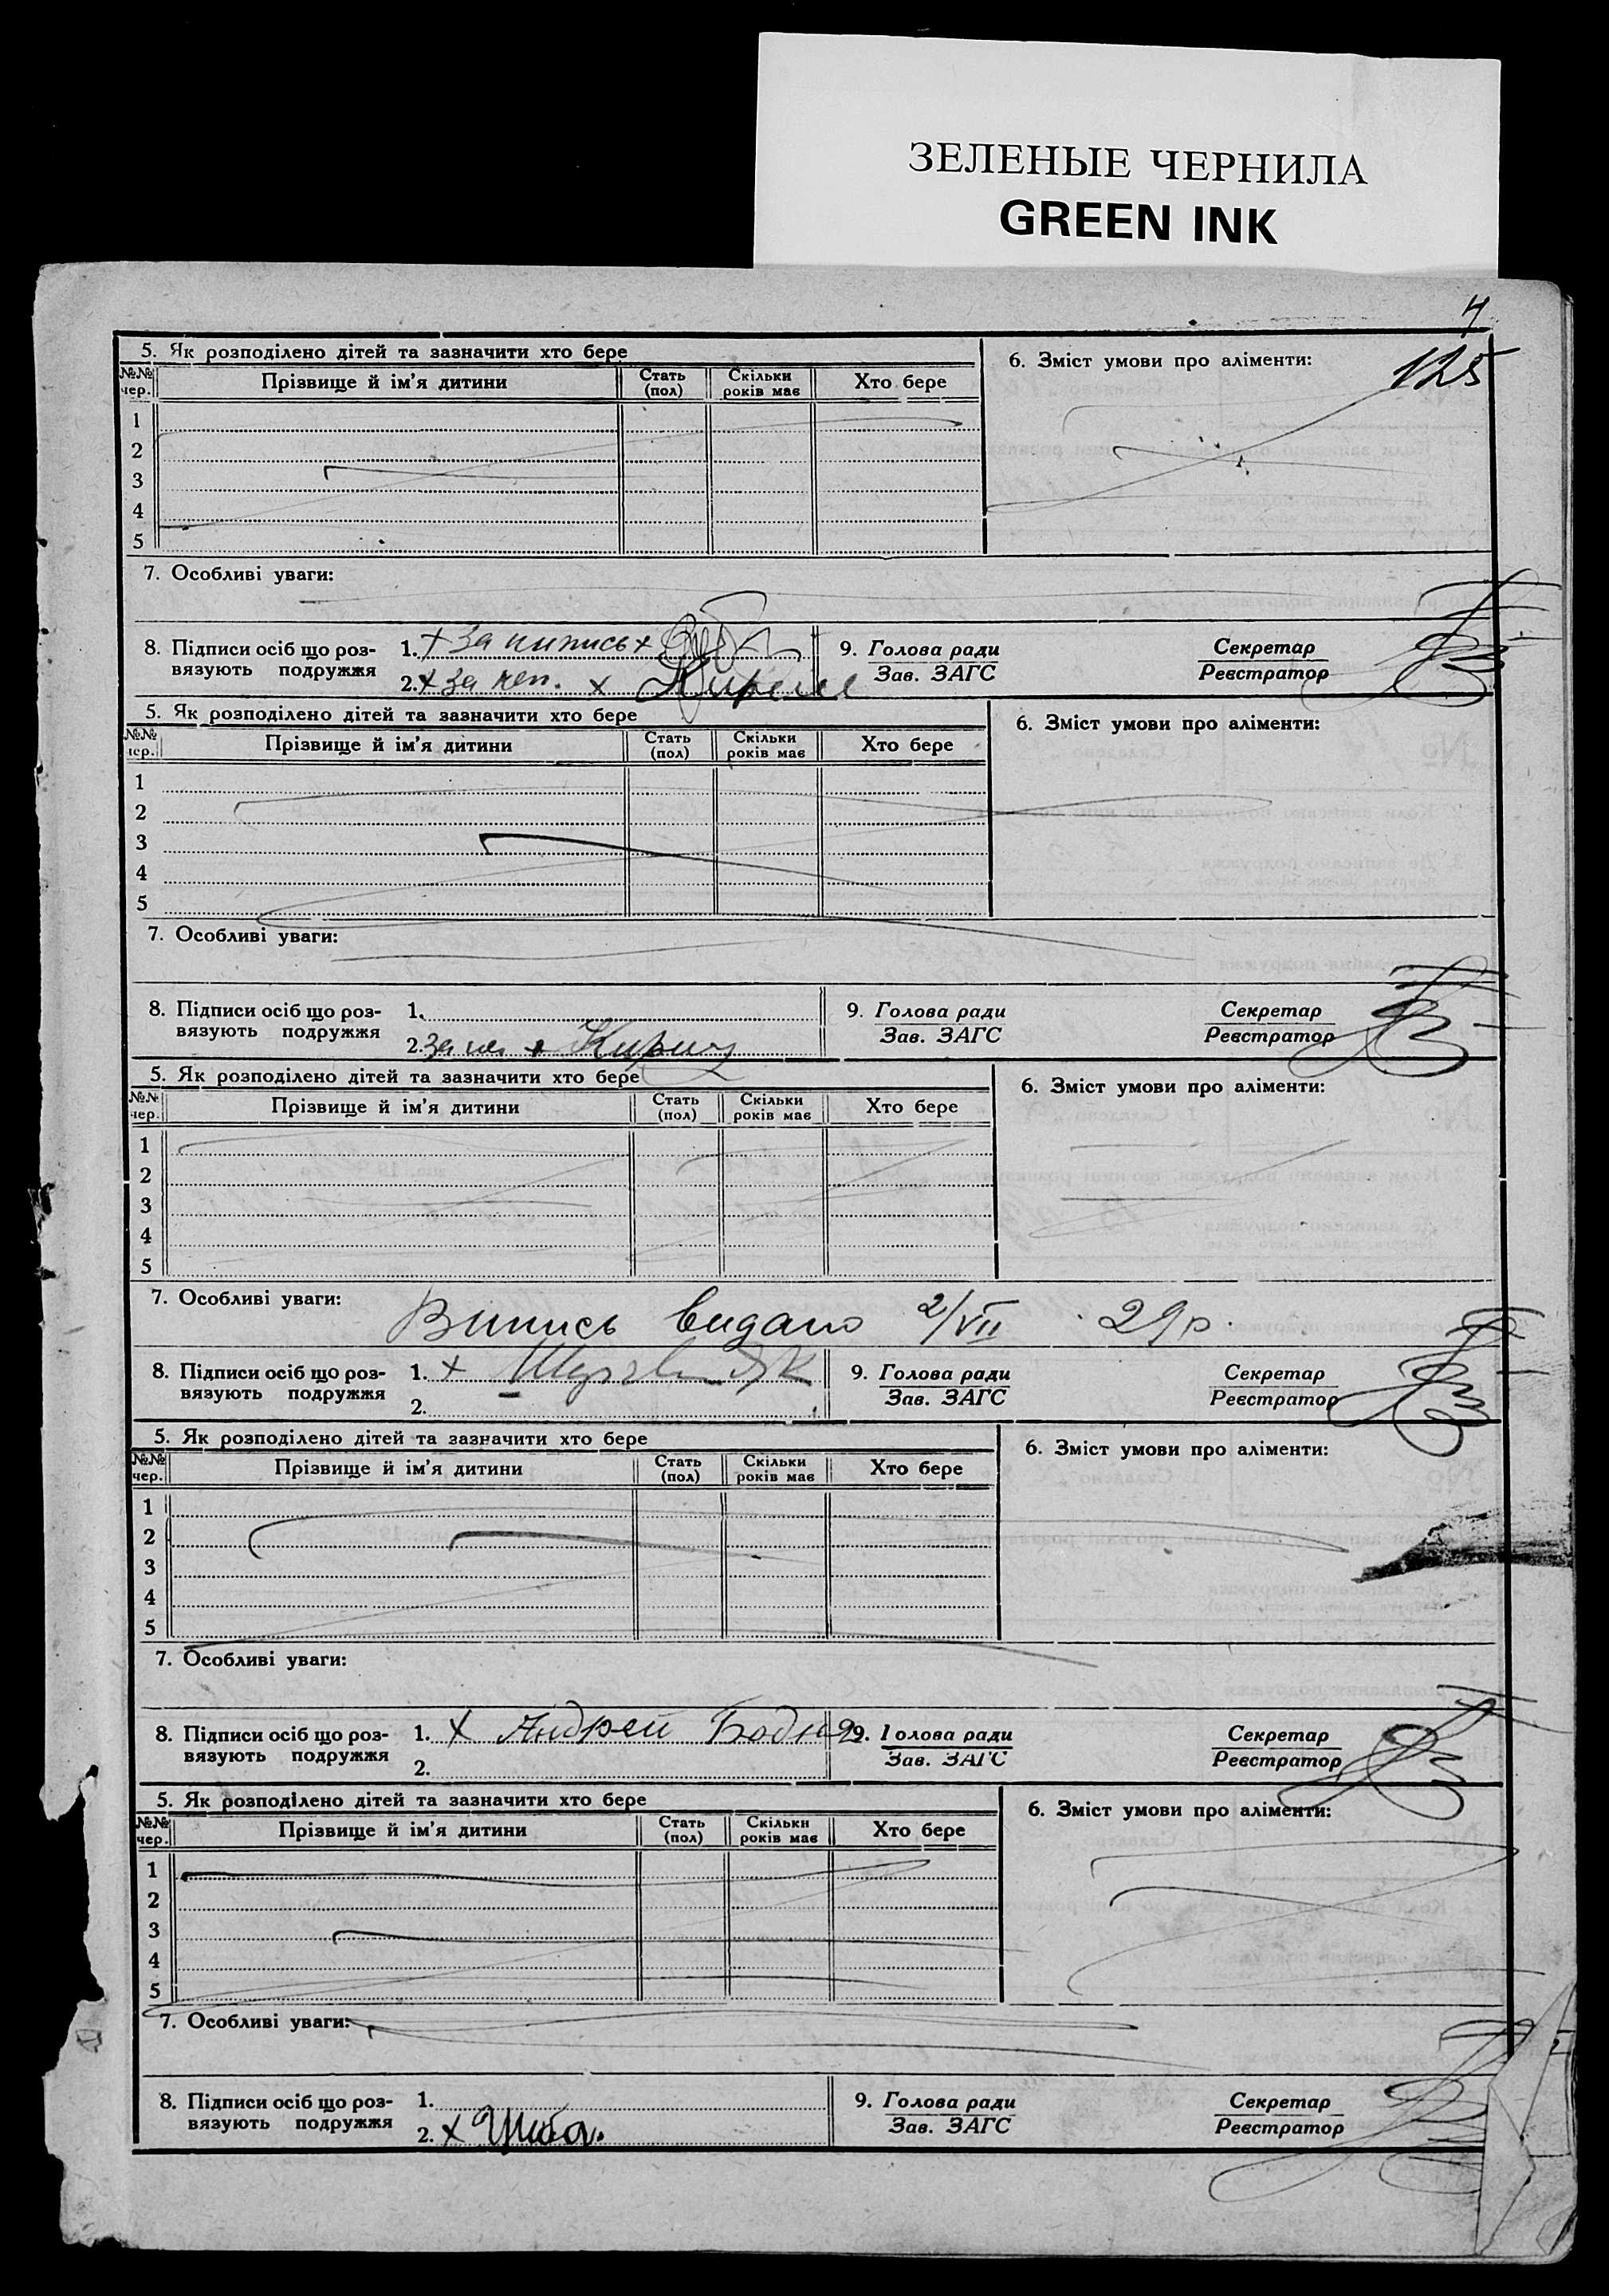 ЗЕЛЕНЫЕ ЧЕРНИЛА
GREEN INK
125
5. Як розподілено дітей та зазначити хто бере
6. Зміст умови про аліменти:
№№ чер. Прізвище й ім'я дитини Стать (пол) Скільки років має Хто бере
1
2
3
4
5
7. Особливі уваги:
8. Підписи осіб що роз-
вязують подружжя
1. +
2. + За неп. x
9. Голова ради
Зав. ЗАГС
Секретар
Реєстратор
5. Як розподілено дітей та зазначити хто бере
6. Зміст умови про аліменти:
№№ чер. Прізвище й ім'я дитини Стать (пол) Скільки років має Хто бере
1
2
3
4
5
7. Особливі уваги:
8. Підписи осіб що роз-
вязують подружжя
1.
2.
9. Голова ради
Зав. ЗАГС
Секретар
Реєстратор
5. Як розподілено дітей та зазначити хто бере
6. Зміст умови про аліменти:
№№ чер. Прізвище й ім'я дитини Стать (пол) Скільки років має Хто бере
1
2
3
4
5
7. Особливі уваги: Випись видано 2/VII 29 р.
8. Підписи осіб що роз-
вязують подружжя
1. +
2.
9. Голова ради
Зав. ЗАГС
Секретар
Реєстратор
5. Як розподілено дітей та зазначити хто бере
6. Зміст умови про аліменти:
№№ чер. Прізвище й ім'я дитини Стать (пол) Скільки років має Хто бере
1
2
3
4
5
7. Особливі уваги:
8. Підписи осіб що роз-
вязують подружжя
1. x Андрей
2.
9. Голова ради
Зав. ЗАГС
Секретар
Реєстратор
5. Як розподілено дітей та зазначити хто бере
6. Зміст умови про аліменти:
№№ чер. Прізвище й ім'я дитини Стать (пол) Скільки років має Хто бере
1
2
3
4
5
7. Особливі уваги:
8. Підписи осіб що роз-
вязують подружжя
1.
2. x
9. Голова ради
Зав. ЗАГС
Секретар
Реєстратор